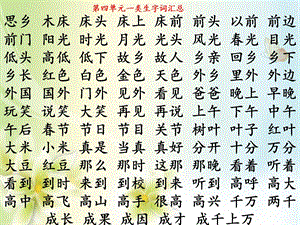 第四单元一类生字词汇总
思乡 木床 床头 床上 床前 前头 前方 前边
前门 阳光 时光 月光 火光 风光 春光 目光
低头 高低 低下 低下 故乡 故事 乡亲 乡下
家乡 红色 白色 金色 外面 外边 外头 外地
外国 国外 门外 看见 再见 晚上 早晚 晚饭
中国 国语 国人 笑语 晚风 上午 下午 中午
午后 春节 节日 关节 节目 树叶 叶子 千万
大米 小米 真是 当真 真人 真好 十分 分开
大豆 红豆 那么 那时 那里 那边 这么 多么
看到 到时 来到 到校 到来 听到 高兴 高大
高中 高飞 高山 高手 很高 千万 两千
成长 成果 成因 成才 成千上万